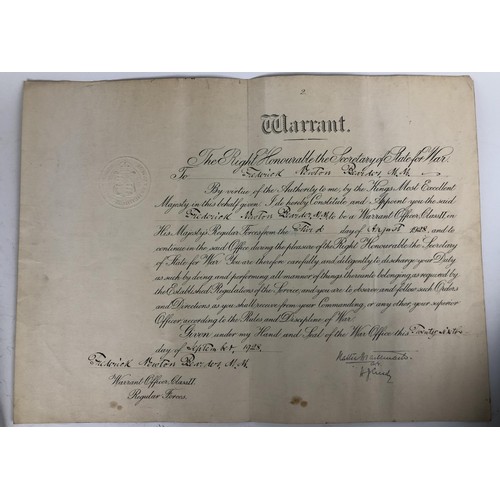 2
Warrant.
The Right Honourable the Secretary of State for War.
To Frederick Newton M.M.
By virtue of the Authority to me, by the Kings Most Excellent
Majesty in this behalf given I do hereby Constitute and Appoint you the said
Frederick Newton M.M. to be a Warrant Officer, Class II, in
His Majesty's Regular Forces from the Third day of August 1928, and to
continue in the said Office during the pleasure of the Right Honourable the Secretary
of State for War. You are therefore carefully and diligently to discharge your Duty
as such by doing and performing all manner of things thereunto belonging, as required by
the Established Regulations of the Service, and you are to observe and follow such Orders
and Directions as you shall receive from your Commanding, or any other, your superior
Officer, according to the Rules and Discipline of War.
Given under my Hand and Seal of the War Office this
day of September, 1928.
Frederick Newton M.M.
Warrant Officer, Class II.
Regular Forces.